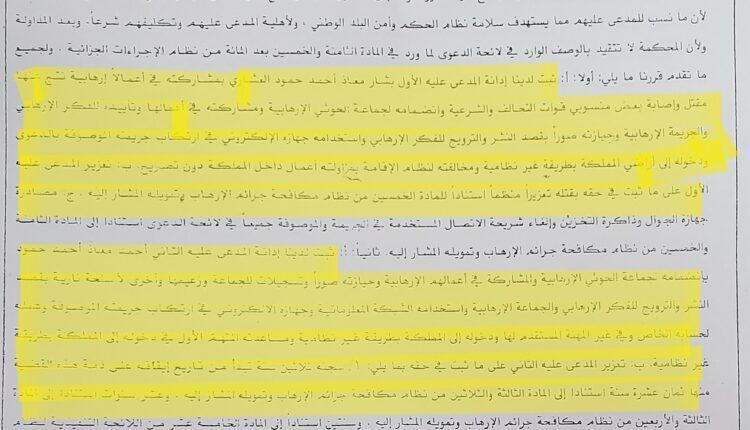 لأن ما نسب للمدعى عليهم مما يستهدف سلامة نظام الحكم وأمن البلد الوطني ، ولأهلية المدعى عليهم وتكليفهم شرعاً. وبعد المداولة
ولأن المحكمة لا تتقيد بالوصف الوارد في لائحة الدعوى لما ورد في المادة الثامنة والخمسين بعد المائة من نظام الإجراءات الجزائية . ولجميع
ما تقدم قررنا ما يلي: أولاً : أ: ثبت لدينا إدانة المدعى عليه الأول بشار معاذ أحمد حمود بمشاركته في أعمالاً إرهابية نتج عنها
مقتل وإصابة بعض منسوبي قوات التحالف والشرعية وانضمامه لجماعة الحوثي الإرهابية ومشاركته في أعمالها وتأييده للفكر الإرهابي
والجريمة الإرهابية وحيازته صوراً بقصد النشر والترويج للفكر الإرهابي واستخدامه جهازه الإلكتروني في ارتكاب جريمته الموصوفة بالدعوى
ودخوله إلى أراضي المملكة بطريقة غير نظامية ومخالفته لنظام الإقامة بمزاولته أعمال داخل المملكة دون تصريح. ب. تعزير المدعى عليه
الأول على ما ثبت في حقه بقتله تعزيراً منظماً استناداً للمادة الخمسين من نظام مكافحة جرائم الإرهاب وتمويله المشار إليه . ج. مصادرة
جهازة الجوال وذاكرة التخزين وإلغاء شريحة الاتصال المستخدمة في الجريمة والموصوفة جميعاً في لائحة الدعوى استنادا إلى المادة الثامنة
والخمسين من نظام مكافحة جرائم الإرهاب وتمويله المشار إليه. ثانياً: أ: ثبت لدينا إدانة المدعى عليه الثاني أحمد معاذ أحمد حمود
بانضمامه لجماعة الحوثي الإرهابية والمشاركة في أعمالهم الإرهابية وحيازته صوراً وتسجيلات للجماعة وزعيمها وأخرى لأسلحة نارية بقصد
النشر والترويج للفكر الإرهابي والجماعة الإرهابية واستخدامه الشبكة المعلوماتية وجهازه الالكتروني في ارتكاب جريمته الموصوفة وعمله
لحسابه الخاص وفي غير المهنة المستقدم لها ودخوله إلى المملكة بطريقة غير نظامية ومساعدته المتهم الأول في دخوله إلى المملكة بطريقة
غير نظامية. ب. تعزير المدعى عليه الثاني على ما ثبت في حقه بما يلي: ١/ سجنه ثلاثين سنة تبدأ من تاريخ إيقافه على ذمة هذه القضية
منها ثمان عشرة سنة استنادا إلى المادة الثالثة والثلاثين من نظام مكافحة جرائم الإرهاب وتمويله المشار إليه . وعشر سنوات استنادا إلى المادة
الثالثة والأربعين من نظام مكافحة جرائم الإرهاب وتمويله المشار إليه . وسنتين استناداً إلى المادة الخامسة عشر من اللائحة التنفيذية لنظام